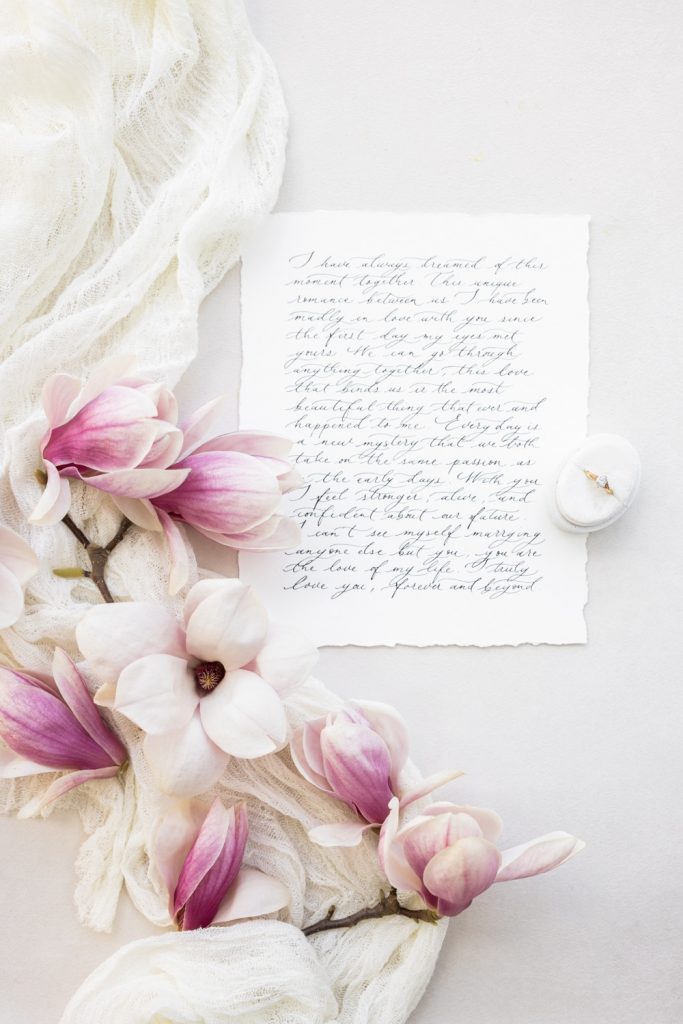 I have always dreamed of this
moment together. This unique
romance between us. I have been
madly in love with you since
the first day my eyes met
yours. We can go through
anything together, this love
that binds us is the most
beautiful thing that ever and
happened to me. Every day is
a new mystery that we both
take on the same passion as
the early days. With you
I feel stronger, alive, and
confident about our future.
I can't see myself marrying
anyone else but you, you are
the love of my life. I truly
love you, forever and beyond